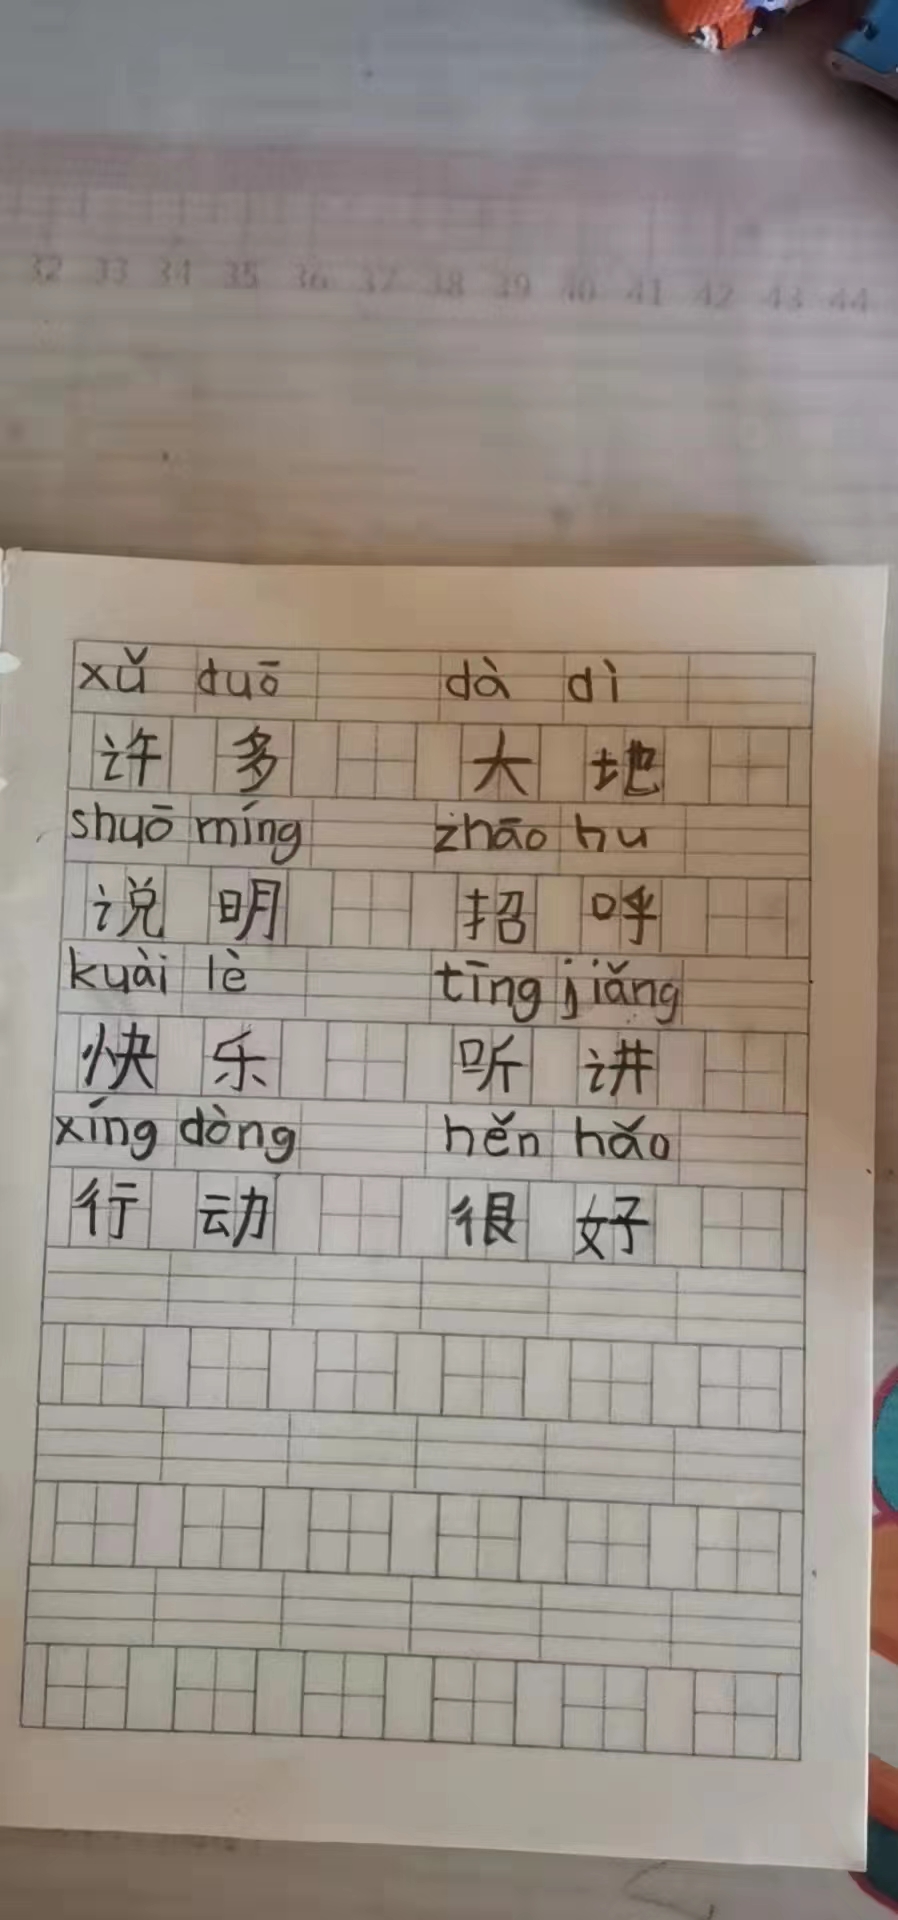 32 33 34 35 36 37 38 39 40 41 42 43 44
xǔ duō dà dì
许多 大地
shuō míng zhāo hu
说明 招呼
kuài lè tīng jiǎng
快乐 听讲
xíng dòng hěn hǎo
行动 很好